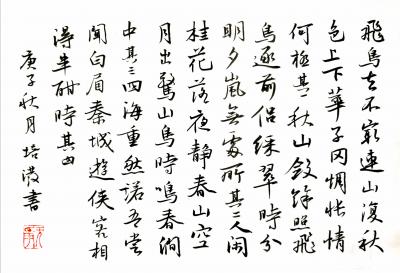 飛鳥去不窮連山復秋
色上下華子冈惆悵情
何極其一秋山斂餘照飛
鳥逐前侶綵翠時分
明夕嵐無處所其二人闲
桂花落夜靜春山空
月出驚山鳥時鳴春澗
中其三四海重然諾吾嘗
聞白眉秦城遊俠客相
得半酣時其四
庚子秋月培書